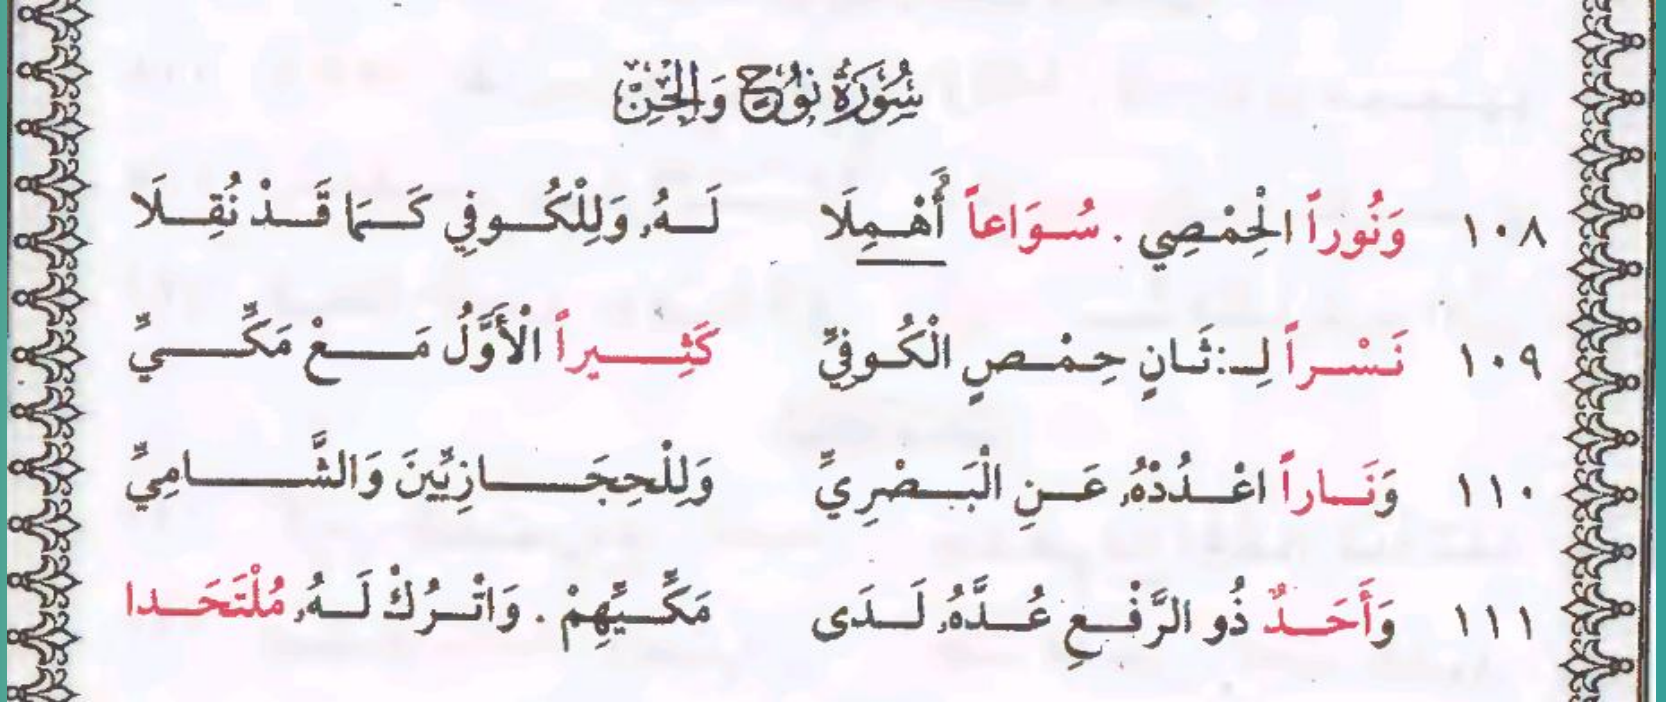 سُورَةُ نُوحٍ وَالْجِنِّ
١٠٨ وَنُوراً الْحِمْصِي . سُوَاعاً أُهْمِلَا لَهُ وَلِلْكُوفِي كَمَا قَدْ نُقِلَا
١٠٩ نَسْراً لِـ:ثَانٍ حِمْصٍ الْكُوفِيِّ كَثِيراً الْأَوَّلُ مَعْ مَكِّيِّ
١١٠ وَنَاراً اعْدُدْهُ عَنِ الْبَصْرِيِّ وَلِلْحِجَازِيِّينَ وَالشَّامِيِّ
١١١ وَأَحَدٌ ذُو الرَّفْعِ عُدَّهُ لَدَى مَكِّيِّهِمْ . وَاتْرُكْ لَهُ مُلْتَحَدا